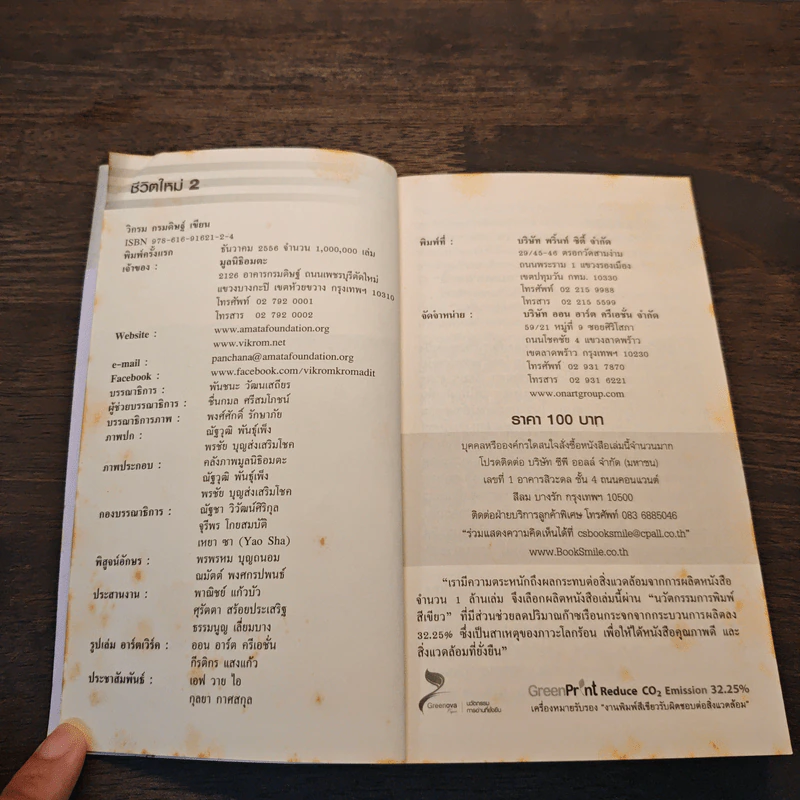 ชีวิตใหม่ 2
วิกรม กรมดิษฐ์ เขียน
ISBN 978-616-91621-2-4
พิมพ์ครั้งแรก ธันวาคม 2556 จำนวน 1,000,000 เล่ม
เจ้าของ : มูลนิธิอมตะ
2126 อาคารกรมดิษฐ์ ถนนเพชรบุรีตัดใหม่
แขวงบางกะปิ เขตห้วยขวาง กรุงเทพฯ 10310
โทรศัพท์ 02 792 0001
โทรสาร 02 792 0002
Website : www.amatafoundation.org
www.vikrom.net
e-mail : panchana@amatafoundation.org
Facebook : www.facebook.com/vikromkromadit
บรรณาธิการ : พันชนะ วัฒนเสถียร
ผู้ช่วยบรรณาธิการ : ชื่นกมล ศรีสมโภชน์
บรรณาธิการภาพ : พงศ์ศักดิ์ รักษาภัย
ภาพปก : ณัฐวุฒิ พันธุ์เพ็ง
พรชัย บุญส่งเสริมโชค
ภาพประกอบ : คลังภาพมูลนิธิอมตะ
ณัฐวุฒิ พันธุ์เพ็ง
พรชัย บุญส่งเสริมโชค
กองบรรณาธิการ : ณัฐชา วิวัฒน์ศิริกุล
จุรีพร โกยสมบัติ
เหยา ซา (Yao Sha)
พิสูจน์อักษร : พรพรหม บุญถนอม
ณมัตต์ พงศกรปพนธ์
ประสานงาน : พาณิชย์ แก้วบัว
สุรัตดา สร้อยประเสริฐ
ธรรมนูญ เลี่ยมบาง
รูปเล่ม อาร์ตเวิร์ค : ออน อาร์ต ครีเอชั่น
กีรติกร แสงแก้ว
ประชาสัมพันธ์ : เอฟ วาย ไอ
กุลยา กาศสกุล
พิมพ์ที่ : บริษัท พริ้นท์ ซิตี้ จำกัด
29/45-46 ตรอกวัดสามง่าม
ถนนพระราม 1 แขวงรองเมือง
เขตปทุมวัน กทม. 10330
โทรศัพท์ 02 215 9988
โทรสาร 02 215 5599
จัดจำหน่าย : บริษัท ออน อาร์ต ครีเอชั่น จำกัด
59/21 หมู่ที่ 9 ซอยศิริโสภา
ถนนโชคชัย 4 แขวงลาดพร้าว
เขตลาดพร้าว กรุงเทพฯ 10230
โทรศัพท์ 02 931 7870
โทรสาร 02 931 6221
www.onartgroup.com
ราคา 100 บาท
บุคคลหรือองค์กรใดสนใจสั่งซื้อหนังสือเล่มนี้จำนวนมาก
โปรดติดต่อ บริษัท ซีพี ออลล์ จำกัด (มหาชน)
เลขที่ 1 อาคารสิวะดล ชั้น 4 ถนนคอนแวนต์
สีลม บางรัก กรุงเทพฯ 10500
ติดต่อฝ่ายบริการลูกค้าพิเศษ โทรศัพท์ 083 6885046
“ร่วมแสดงความคิดเห็นได้ที่ csbooksmile@cpall.co.th”
www.BookSmile.co.th
“เรามีความตระหนักถึงผลกระทบต่อสิ่งแวดล้อมจากการผลิตหนังสือ
จำนวน 1 ล้านเล่ม จึงเลือกผลิตหนังสือเล่มนี้ผ่าน “นวัตกรรมการพิมพ์
สีเขียว” ที่มีส่วนช่วยลดปริมาณก๊าซเรือนกระจกจากกระบวนการผลิตลง
32.25% ซึ่งเป็นสาเหตุของภาวะโลกร้อน เพื่อให้ได้หนังสือคุณภาพดี และ
สิ่งแวดล้อมที่ยั่งยืน”
Greenova นวัตกรรม
การอ่านที่ยั่งยืน
GreenPrint Reduce CO2 Emission 32.25%
เครื่องหมายรับรอง “งานพิมพ์สีเขียวรับผิดชอบต่อสิ่งแวดล้อม”